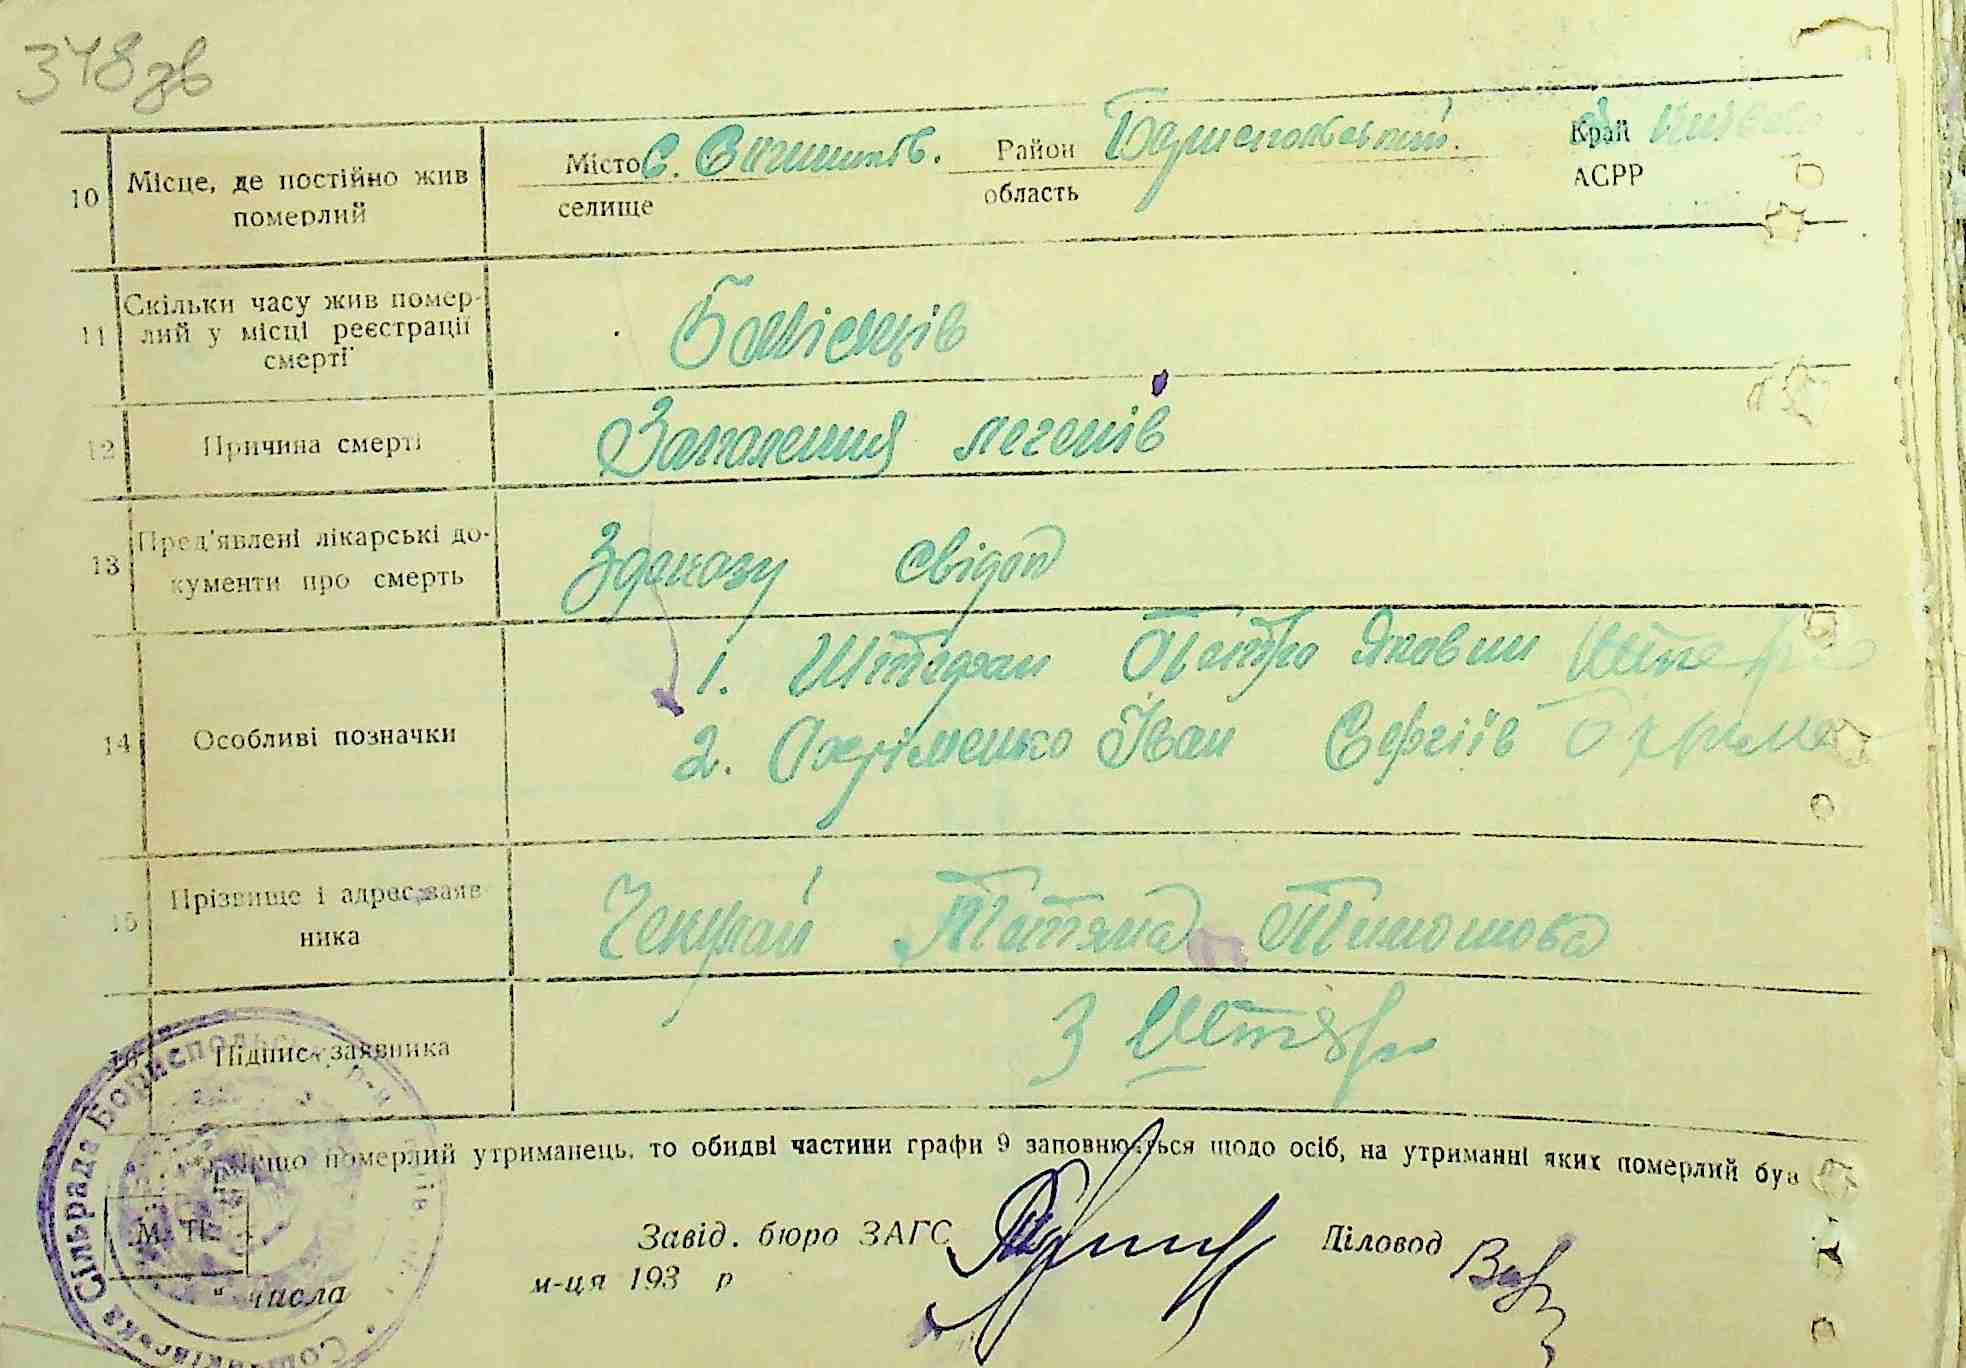 348 зв
10 Місце, де постійно жив померлий
Місто с. Район Бориспольський. Край
селище область АСРР
11 Скільки часу жив помер-
лий у місці реєстрації
смерті
5 місяців
12 Причина смерті Запалення легенів
13 Пред'явлені лікарські до-
кументи про смерть
Здоказу свідов
14 Особливі позначки
1. Штефан Петро Якович
2. Охріменко Іван Сергіїв
15 Прізвище і адрес заяв-
ника
Чекурай Тетяна Тимошова
16 Підпис заявника
Якщо померлий утриманець, то обидві частини графи 9 заповнюються щодо осіб, на утриманні яких померлий був
М. П.
Завід. бюро ЗАГС Діловод
" числа м-ця 193 р
Сільрада Бориспольськ. р-н